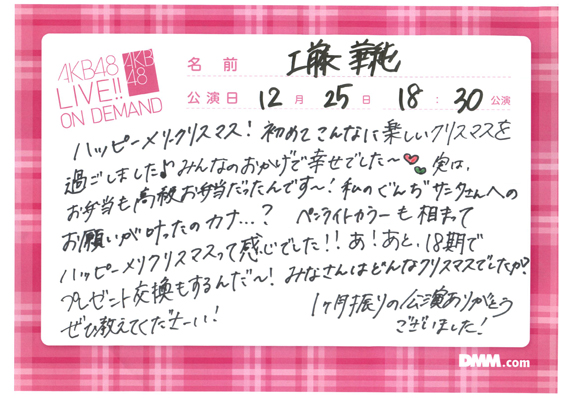 AKB48
LIVE!!
ON DEMAND
AKB
48
名前 工藤 華純
公演日 12月 25日 18:30 公演
ハッピーメリクリスマス！初めてこんなに楽しいクリスマスを
過ごしました♪みんなのおかげで幸せでした〜 実は、
お弁当も高級お弁当だったんです〜！私のぐんぢサンタさんへの
お願いが叶ったのカナ...？ ペンライトカラーも相まって
ハッピーメリクリスマスって感じでした!!あ！あと、18期で
プレゼント交換もするんだ〜！みなさんはどんなクリスマスでしたか?
ぜひ教えてくださーい！ 1ヶ月振りの公演ありがとう
ございました！
DMM.com